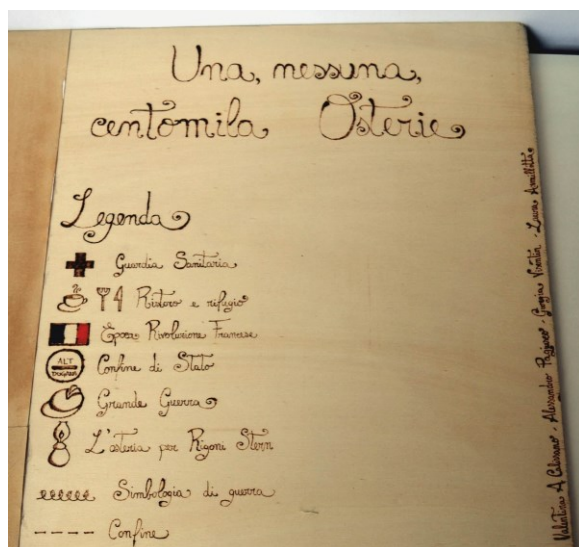 Una, nessuna,
centomila Osterie
Legenda
Guardia Sanitaria
Ristoro e rifugio
Epoca Rivoluzione Francese
ALT
Confine di Stato
Grande Guerra
L'osteria per Rigoni Stern
Simbologia di guerra
Confine
Valentina A. - Alessandro - Giorgia Vicentin - Laura